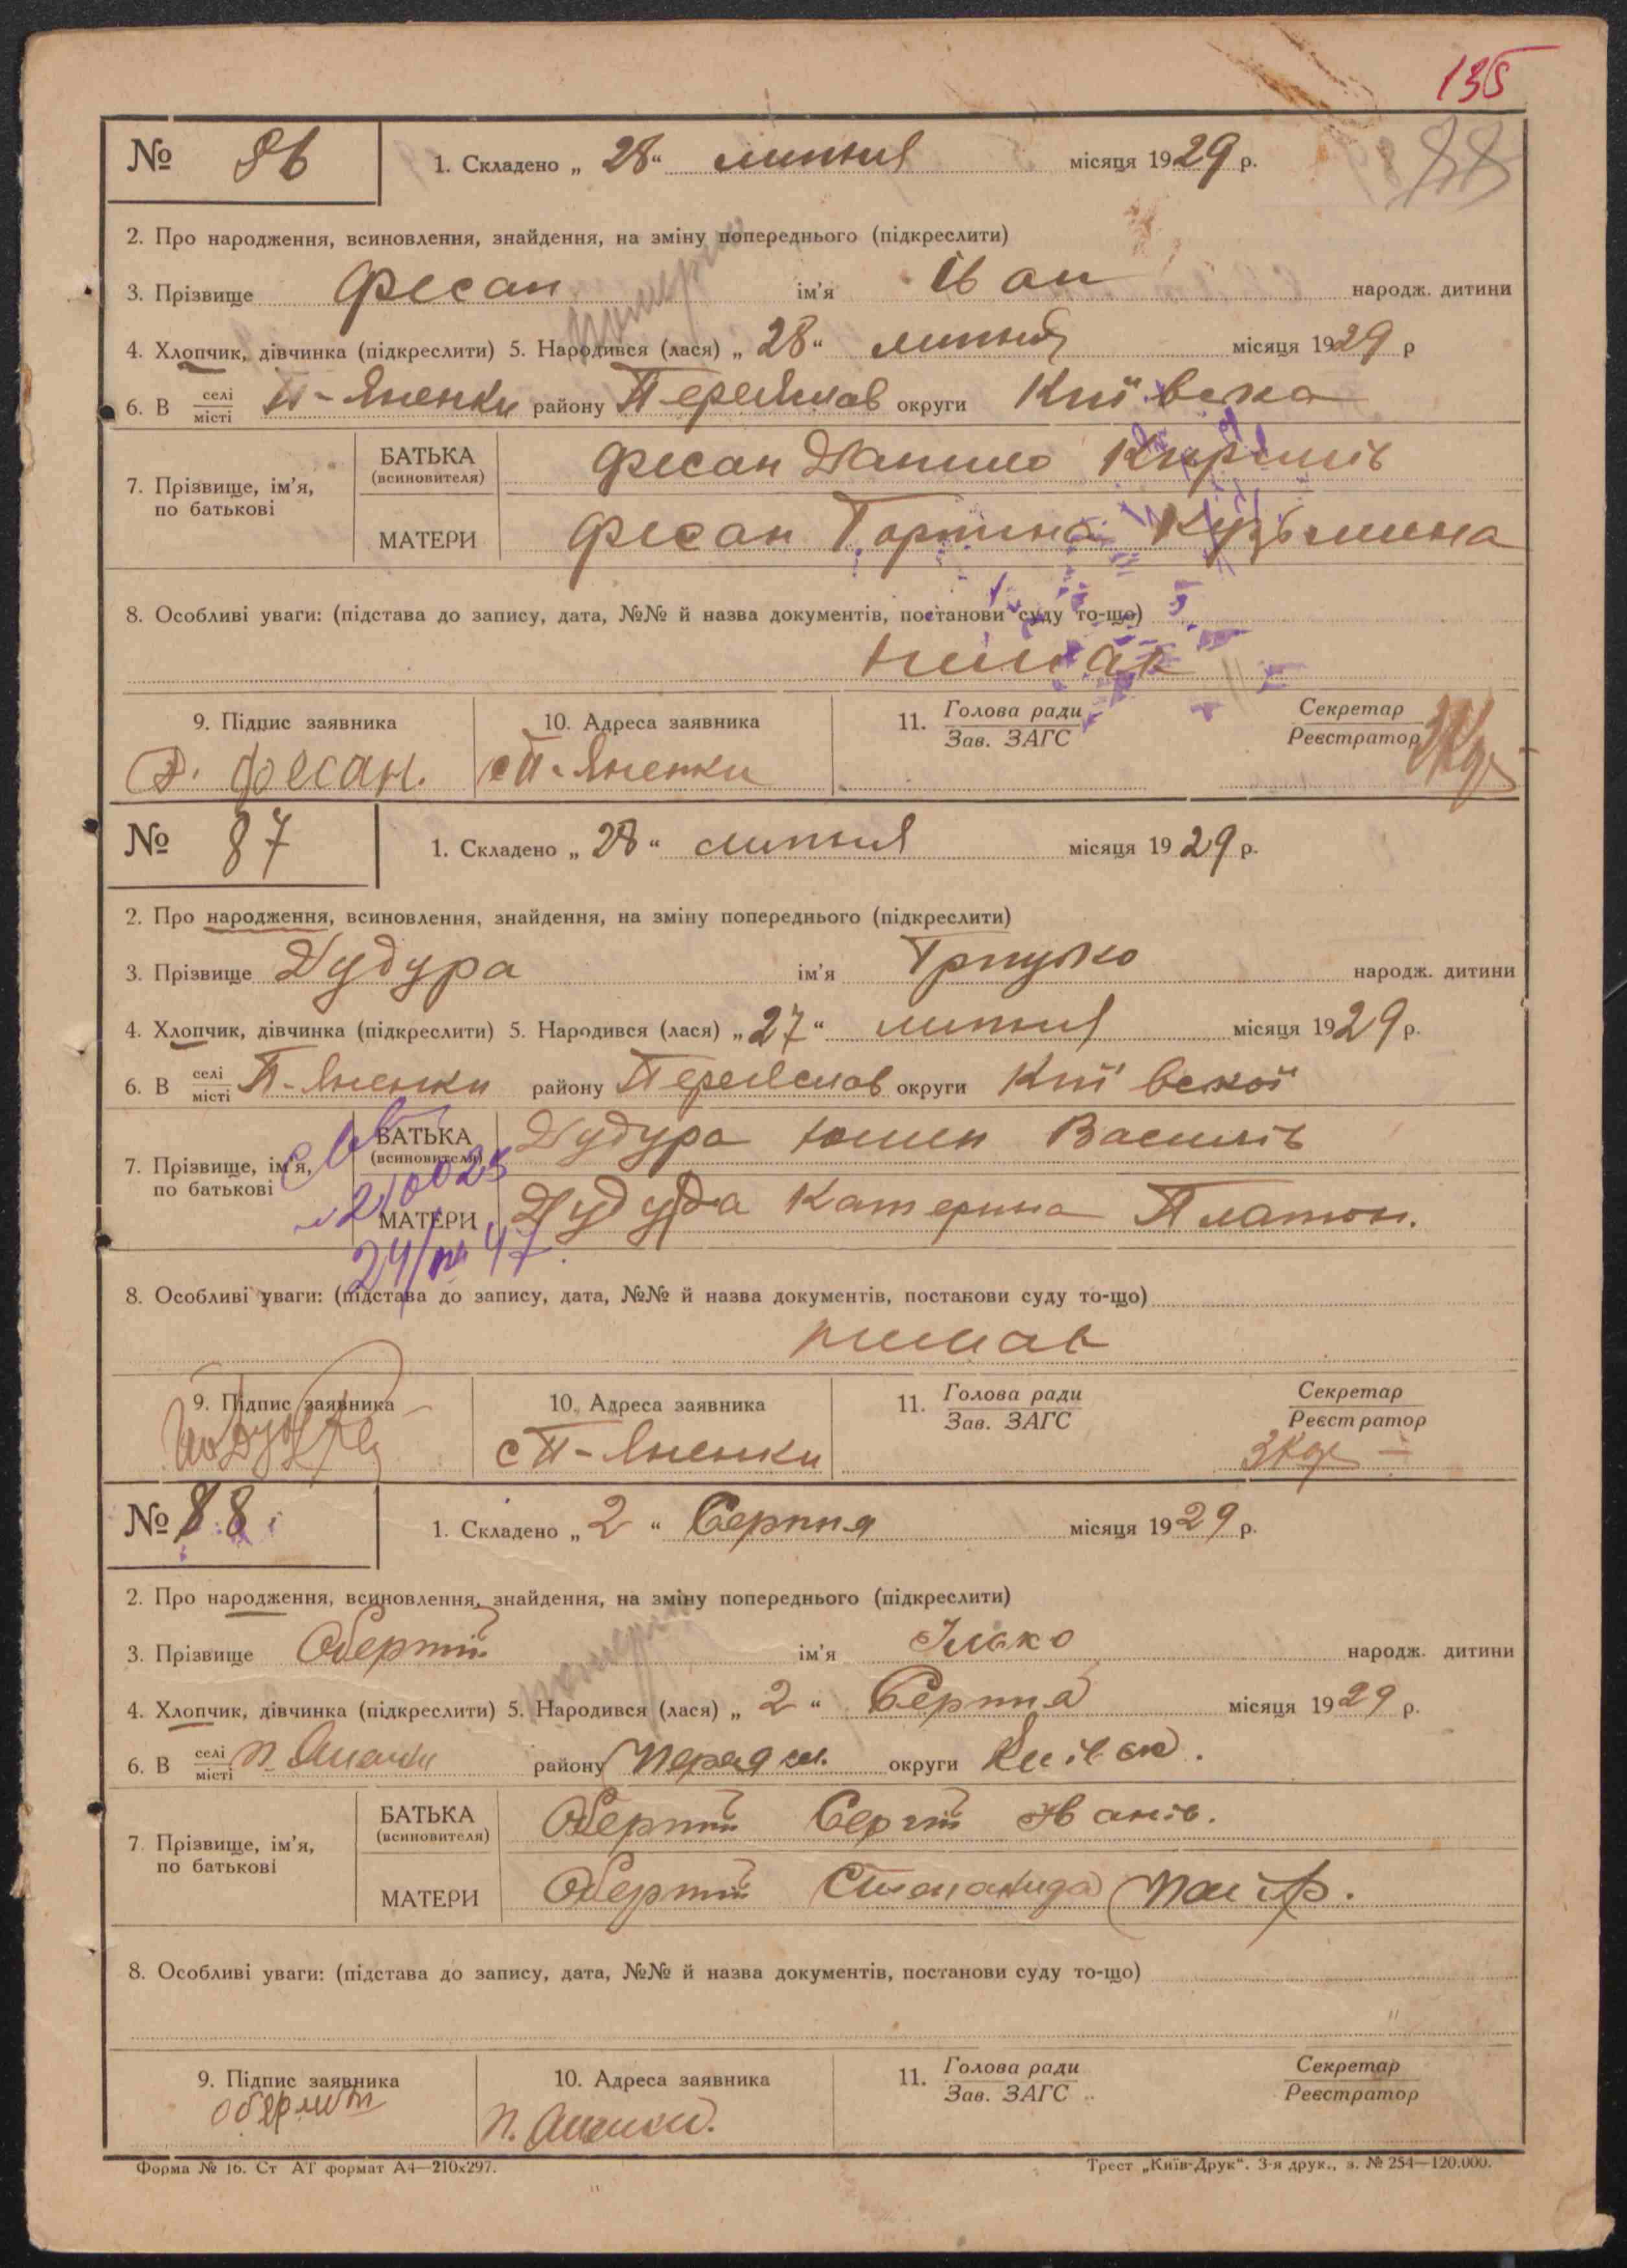 135
№ 86 1. Складено „ 28 “ липня місяця 1929 р. 88
2. Про народження, всиновлення, знайдення, на зміну попереднього (підкреслити)
3. Прізвище Фесан ім'я Іван народж. дитини
4. Хлопчик, дівчинка (підкреслити) 5. Народився (лася) „ 28 “ липня місяця 1929 р
6. В селі/місті П-Яненки району Переяслав округи Київська
7. Прізвище, ім'я, по батькові БАТЬКА (всиновителя) Фесан Данило Кирилів
МАТЕРИ Фесан Горпина Кузьмина
8. Особливі уваги: (підстава до запису, дата, №№ й назва документів, постанови суду то-що)
9. Підпис заявника 10. Адреса заявника 11. Голова ради/Зав. ЗАГС Секретар/Реєстратор
Д. Фесан. с П-Яненки
№ 87 1. Складено „ 28 “ липня місяця 1929 р.
2. Про народження, всиновлення, знайдення, на зміну попереднього (підкреслити)
3. Прізвище Дудура ім'я Грицько народж. дитини
4. Хлопчик, дівчинка (підкреслити) 5. Народився (лася) „ 27 “ липня місяця 1929 р.
6. В селі/місті П-Яненки району Переяслав округи Київської
7. Прізвище, ім'я, по батькові БАТЬКА (всиновителя) Дудура Юхим Василів
МАТЕРИ Дудура Катерина Платон.
8. Особливі уваги: (підстава до запису, дата, №№ й назва документів, постанови суду то-що)
немає
9. Підпис заявника 10. Адреса заявника 11. Голова ради/Зав. ЗАГС Секретар/Реєстратор
с П-Яненки
№ 88 1. Складено „ 2 “ Серпня місяця 1929 р.
2. Про народження, всиновлення, знайдення, на зміну попереднього (підкреслити)
3. Прізвище Обертій ім'я Ілько народж. дитини
4. Хлопчик, дівчинка (підкреслити) 5. Народився (лася) „ 2 “ Серпня місяця 1929 р.
6. В селі/місті П. Яненки району Переясл. округи Київськ.
7. Прізвище, ім'я, по батькові БАТЬКА (всиновителя) Обертій Сергій Іванів.
МАТЕРИ Обертій Степанида
8. Особливі уваги: (підстава до запису, дата, №№ й назва документів, постанови суду то-що)
9. Підпис заявника 10. Адреса заявника 11. Голова ради/Зав. ЗАГС Секретар/Реєстратор
П. Яненки.
Форма № 16. Ст АТ формат А4—210х297. Трест „Київ-Друк“. 3-я друк., з. № 254—120.000.